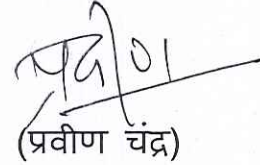 प्रवीण
(प्रवीण चंद्र)